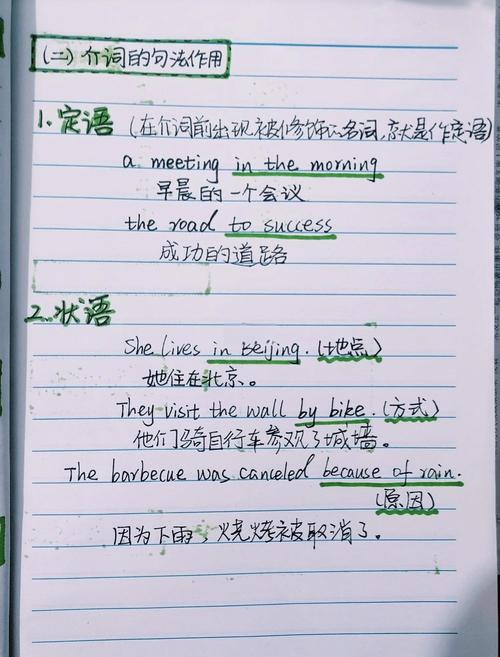 (二) 介词的句法作用
1.定语 (在介词前出现被修饰的名词,就是作定语)
a meeting in the morning
早晨的一个会议
the road to success
成功的道路
2.状语
She lives in Beijing. (地点)
她住在北京。
They visit the wall by bike. (方式)
他们骑自行车参观了城墙。
The barbecue was canceled because of rain.
(原因)
因为下雨,烧烤被取消了。